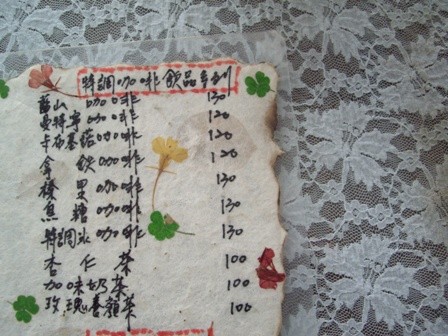 特調咖啡飲品系列
藍山咖啡 130
曼特寧咖啡 120
卡布基諾咖啡 120
拿鐵咖啡 120
榛果咖啡 130
焦糖咖啡 130
特調冰咖啡 130
杏仁茶 100
味奶茶 100
玫瑰養顏茶 100